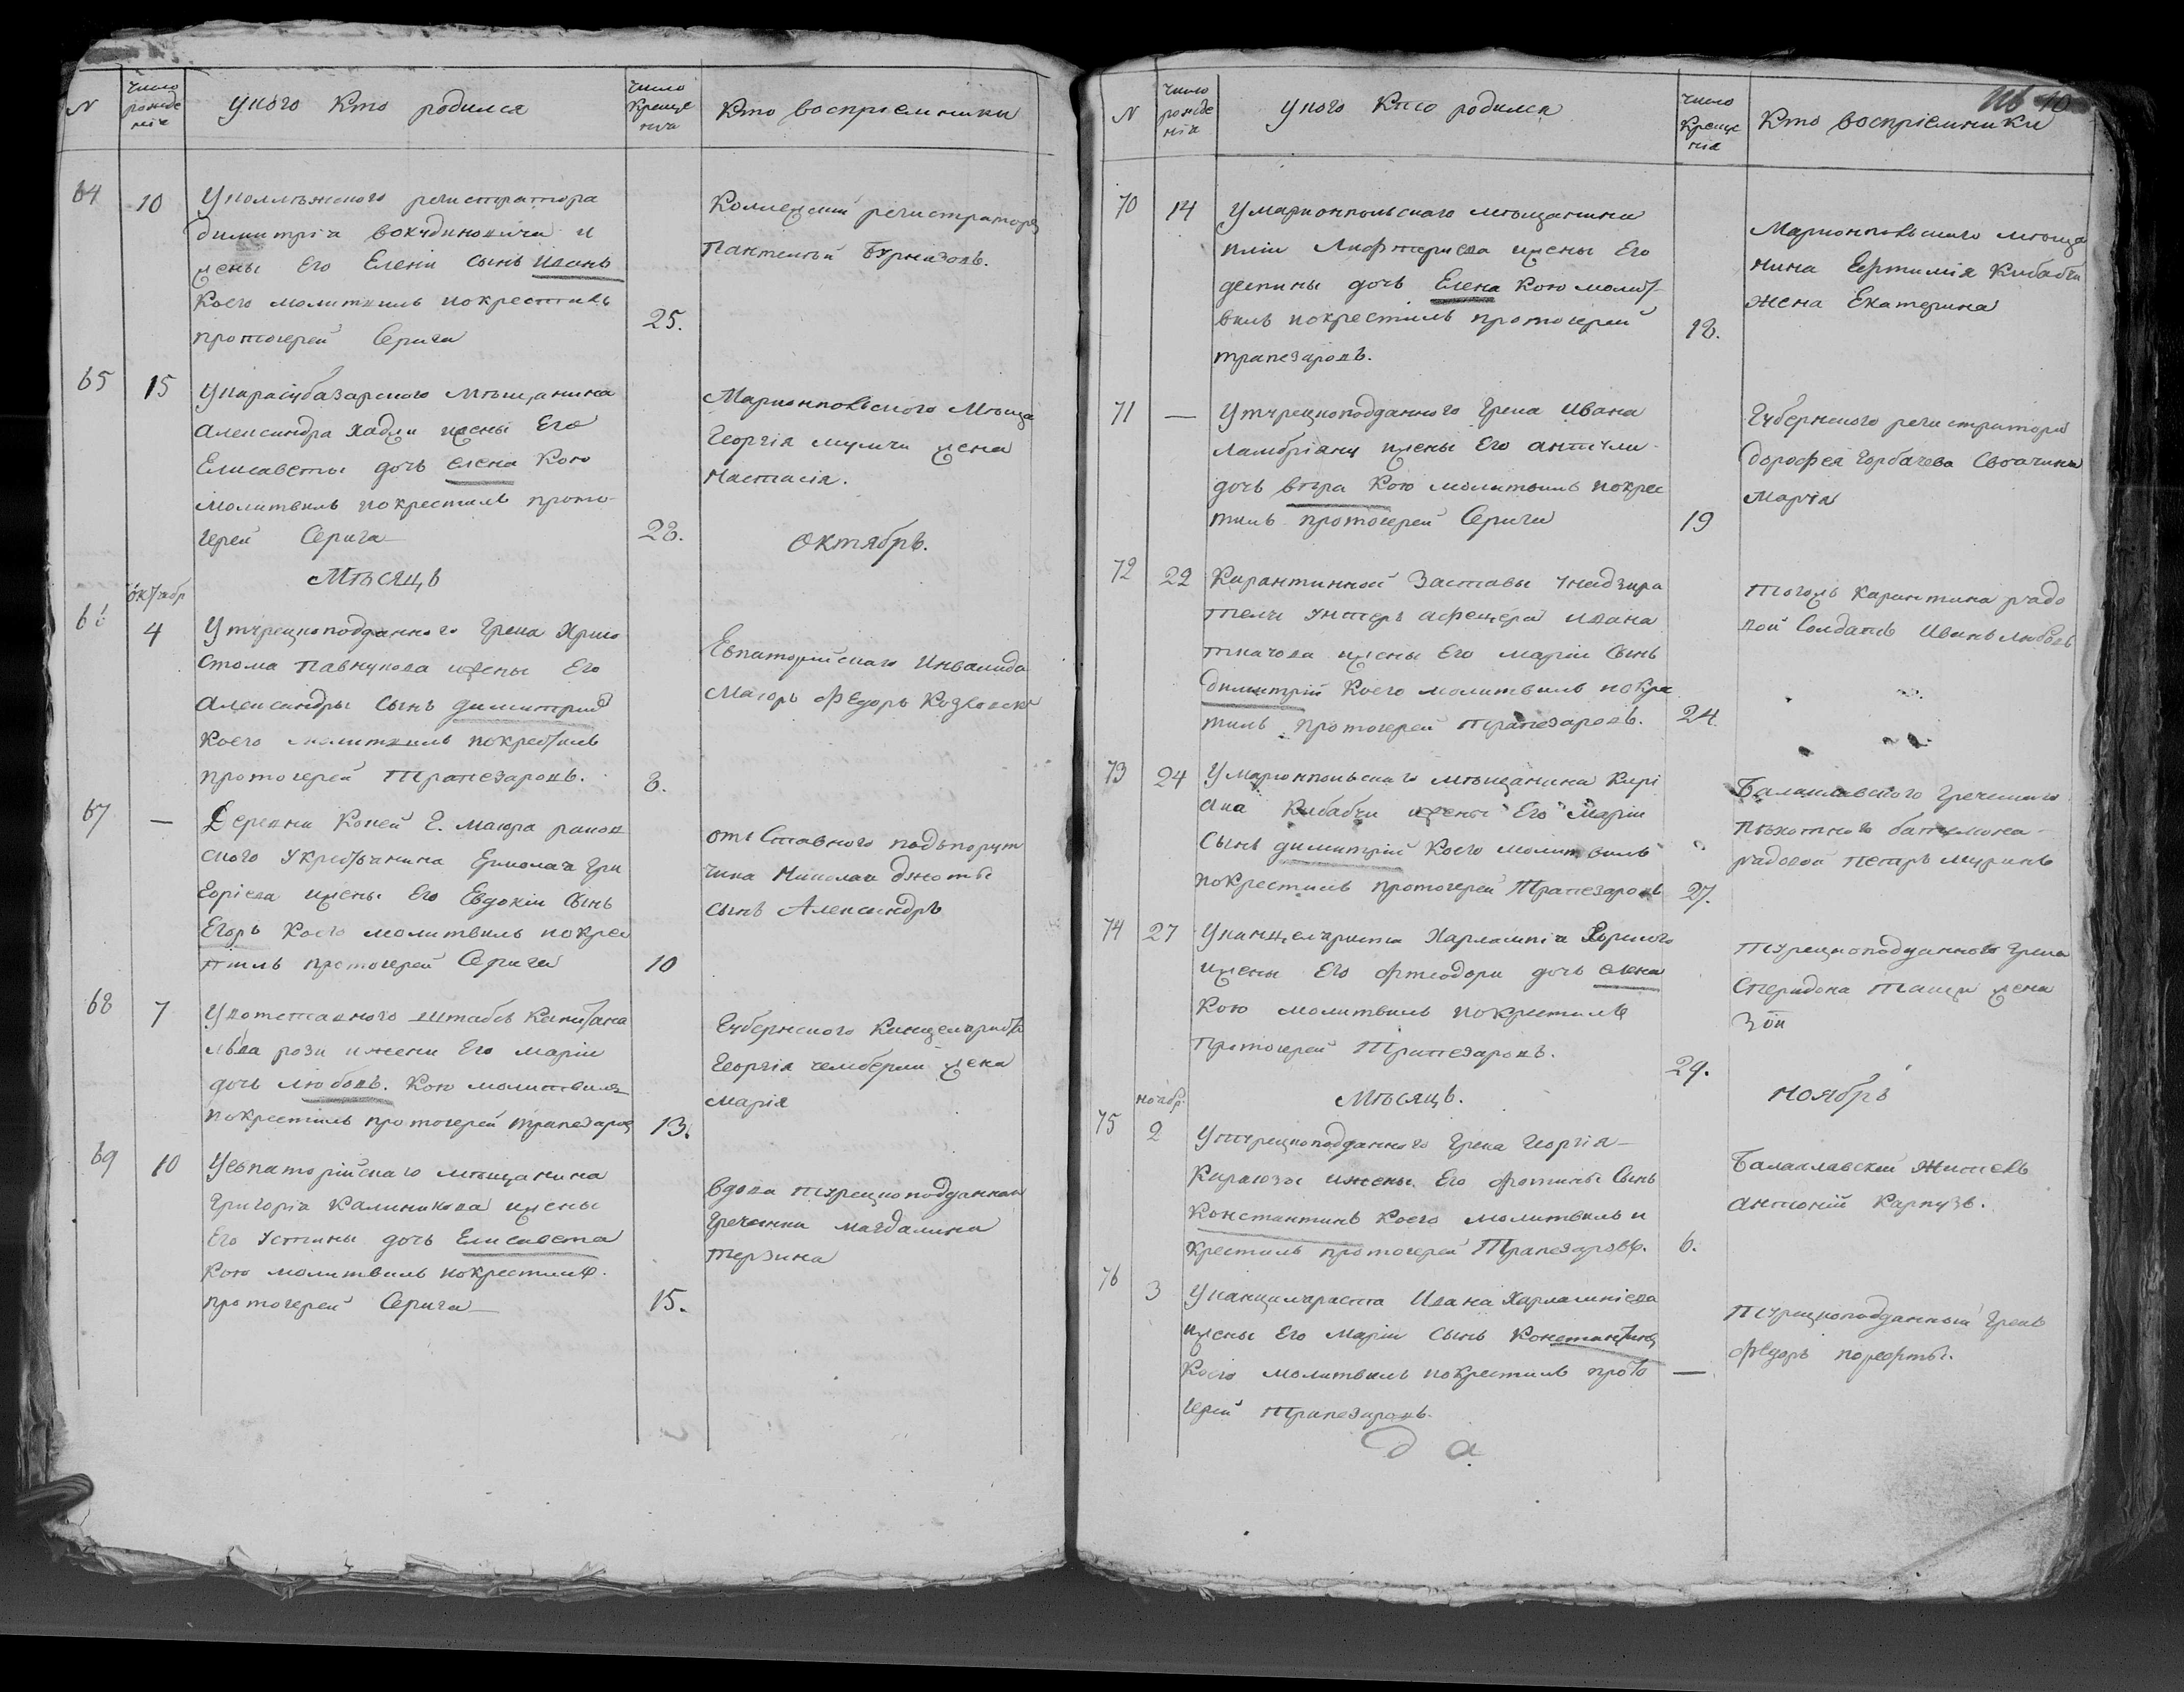 N
число рожде нія
у кого кто родился
число креще нія
кто воспріемники
64
10
У коллежского регистратора
димитріа и
жены Его Елени сынъ Иванъ
Коего молитвилъ и окрестилъ
протоіерей Серича
25.
Коллежскій регистраторъ
Пантелей Бурназовъ.
65
15
У карасубазарского мѣщанина
Александра Хаджи и жены Его
Елисаветы дочь елена Кою
молитвилъ и окрестилъ прото-
іерей Серича
28.
Мариопольского Мѣща
Георгія жена
Настасія.
Мѣсяцъ
октябрь.
октябр
66
4
У турецкоподданного Грека Хрисо
стома и жены Его
Александры Сынъ димитрий
коего молитвилъ и окрестилъ
протоіерей Трапезаровъ.
8.
Евпаторійского Инвалида
Маіоръ Федоръ Козловски
67
—
Деревни Коней Г. Маіора
ского у крестьянина Ермолая Гри
горіева и жены Его Евдокіи Сынъ
Егоръ Коего молитвилъ и окрес
тилъ протоіерей Серича
10
отъ Ставного подъпорут
чика Николая
сынъ Александръ
68
7
У отставного штабсъ Капитана
льва рози и жени Его маріи
дочь любовь. Кою молитвилъ
и окрестилъ протоіерей трапезаров
13.
Губернского Канцеляриста
Георгія жена
марія
69
10
У евпаторійскаго мѣщанина
Григоріа Калиникова и жены
Его устины дочь Елисавета
Кою молитвилъ и окрестилъ.
протоіерей Серича
15.
вдова турецкоподданная
гречанка магдалина
терзина
N
число рожде нія
у кого кто родился
число креще нія
кто воспріемники
10
70
14
У мариопольскаго мѣщанина
илии Лифтериева и жены Его
деспины дочь Елена Кою молит
вилъ и окрестилъ протоіерей
трапезаровъ.
18.
Мариопольского мѣща
нина Евтимія Кибабчи
жена Екатерина
71
—
У турецкоподданного Грека Ивана
Ламбріану и жены Его
дочь вѣра Кою молитвилъ и окрес
тилъ протоіерей Серича
19
Губернского регистратора
дорофея Горбачева Своячина
Марія
72
22
Карантинной Заставы у надзира
теля унтеръ афецера Ивана
ткачова и жены Его маріи Сынъ
димитрій Коего молитвилъ и окре
тилъ протоіерей трапезаровъ.
24.
Тогожъ Карантина рядо
вой Солдатъ Иванъ
73
24
У мариопольскаго мѣщанина Кирі
ака Кибабчи и жены Его Маріи
Сынъ димитрій Коего молитвилъ
и окрестилъ протоіерей Трапезаровъ
27.
Балаклавского Греческаго
Пѣхотного баталиона
рядовой Петръ муринъ
74
27
У канцеляриста Харлампія
и жены Его феодори дочь елена
Кою молитвилъ и окрестилъ
протоіерей Трапезаровъ.
29.
Турецкоподданного Грека
Спиридона жена
Зои
Мѣсяцъ.
Ноябрь
ноябр.
75
2
У турецкоподданного Грека Георгія
Караюзы и жены Его фотины Сынъ
Константинъ коего молитвилъ и
крестилъ протоіерей Трапезаровъ.
6.
Балаклавский житель
антоній Карпузъ.
76
3
У канцеляриста Ивана Харлампіева
и жены Его Маріи сынъ Константинъ
Коего молитвилъ и окрестилъ прото
іерей трапезаровъ.
—
Турецкоподданный Грекъ
Федоръ
да